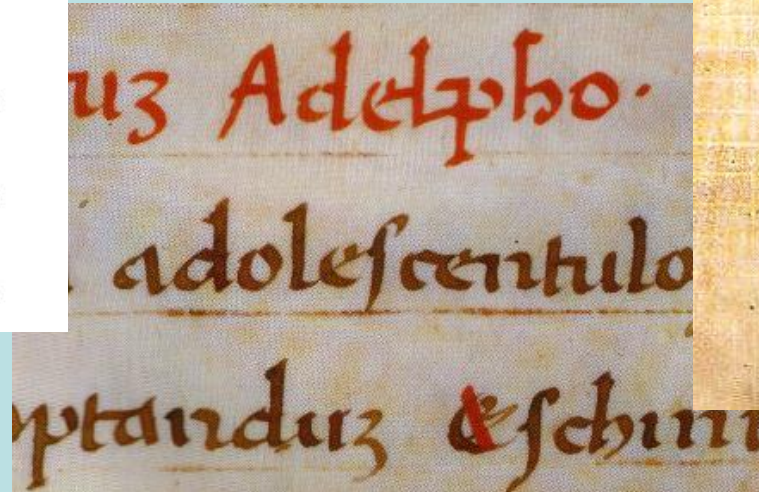 uʒ Adelpho·
adoleſcentulo
ptanduʒ Æſchin